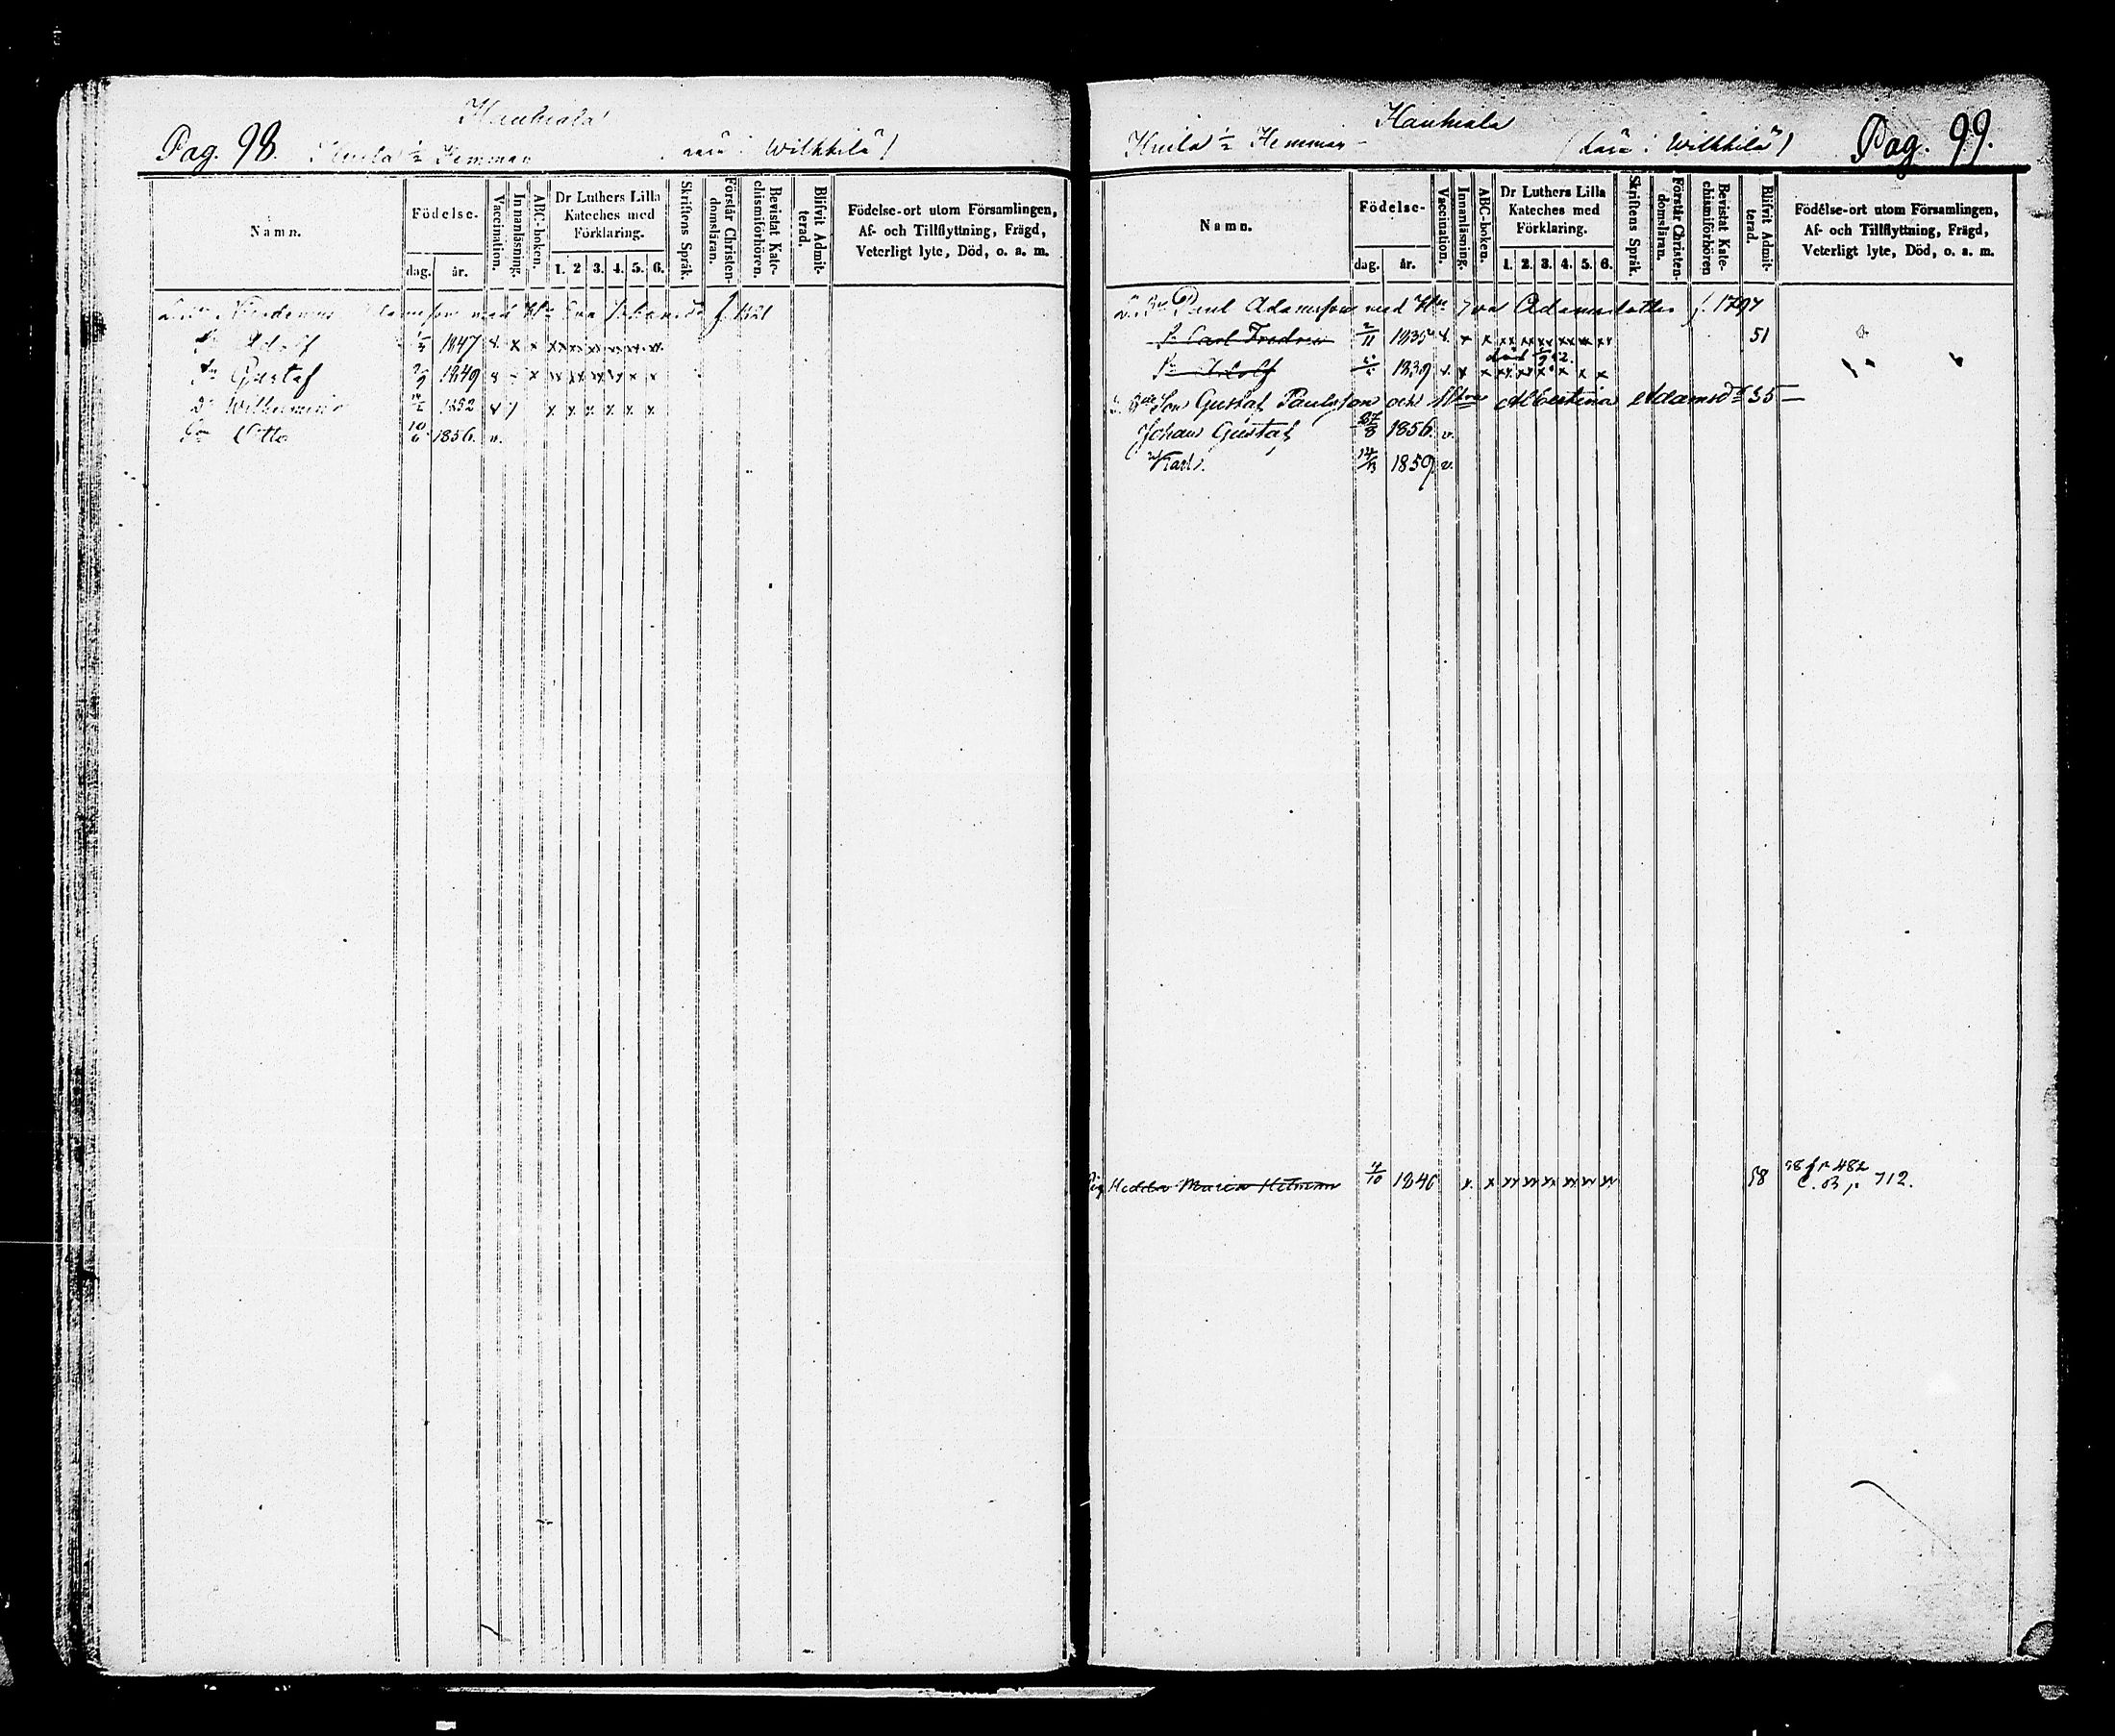 Hauhiala
Pag. 98.
Knila ½ Hemman
Wilkkilä)
Namn.
Födelse-
dag.
år.
Vaccination.
Innanläsning.
ABC-boken.
Dr Luthers Lilla
Kateches med
Förklaring.
1. 2 3. 4. 5. 6.
Skriftens Språk.
Förstår Christen-
domsläran.
Bevistat Kate-
chismiförhören.
Blifvit Admit-
terad.
Födelse-ort utom Församlingen,
Af- och Tillflyttning, Frägd,
Veterligt lyte, Död, o. a. m.
Adolf 1847 v. x x xx xx xx xx xx xx
Gustaf 1849
Dr Wilhelmina 1852 x x x x x x
Sn Otto 10/6 1856. v.
Hauhiala
Knila ½ Hemman
Wilkkilä)
Pag. 99.
Namn.
Födelse-
dag.
år.
Vaccination.
Innanläsning.
ABC-boken.
Dr Luthers Lilla
Kateches med
Förklaring.
1. 2. 3. 4. 5. 6.
Skriftens Språk.
Förstår Christen-
domsläran.
Bevistat Kate-
chismiförhören
Blifvit Admit-
terad.
Födelse-ort utom Församlingen,
Af- och Tillflyttning, Frägd,
Veterligt lyte, Död, o. a. m.
Paul Adamsson med Adamsdotter f. 1797
Sn Carl Fredric 2/11 1835 v. x x xx xx xx xx xx xx 51
död
Sn Adolf 1839 v. x x
Son Gustaf Paulsson och Albertina Adamsdr 35 —
Johan Gustaf 27/8 1856 v.
Karl. 14/3 1859 v.
Pig Hedda Maria 4/10 1840 x. x xx xx xx xx xx xx 58 58 fr 482
C. B p. 712.